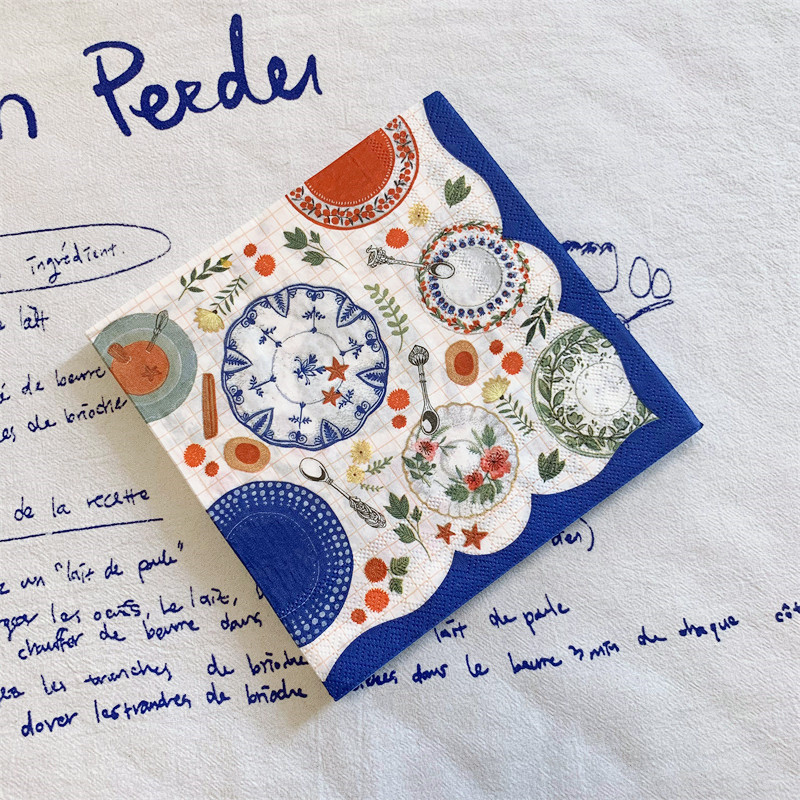 n Perdu
ingrédient.
lait
é de beurre
es de brioche
de la recette
un "lait de poule"
les oeufs, le lait,
chauffer de beurre dans
lait de poule
les tranches de brioche
dans le beurre 3 min de chaque côté
dorer les tranches de brioche